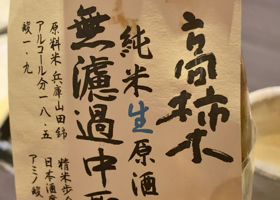 高柿木
純米生原酒
無濾過中
原料米 兵庫山田錦 精米歩
アルコール分一八・五 日本酒
酸一・九 アミノ酸